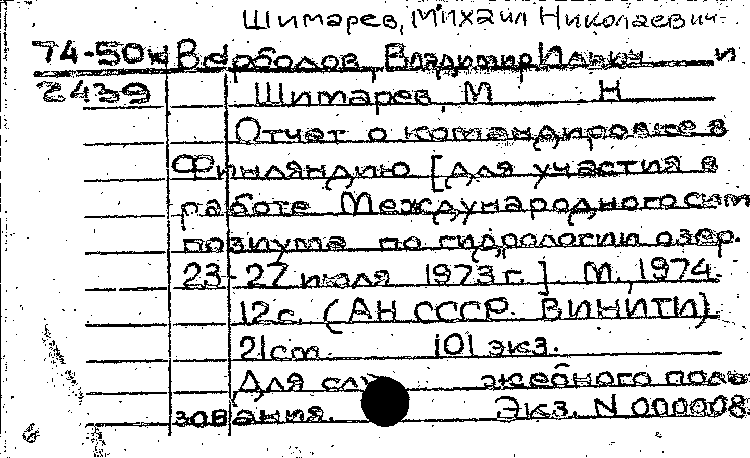 Шимарев, Михаил Николаевич
74-50ж Верболов, Владимир Ильич и
2439 Шимарев, М Н
Отчет о командировке в
Финляндию [для участия в
работе Международного сим
позиума по гидрологии озер.
23-27 июля 1973 г.] М., 1974.
12 с. (АН СССР. ВИНИТИ).
21 см. 101 экз.
Для служебного поль
зования. Экз. N 000008